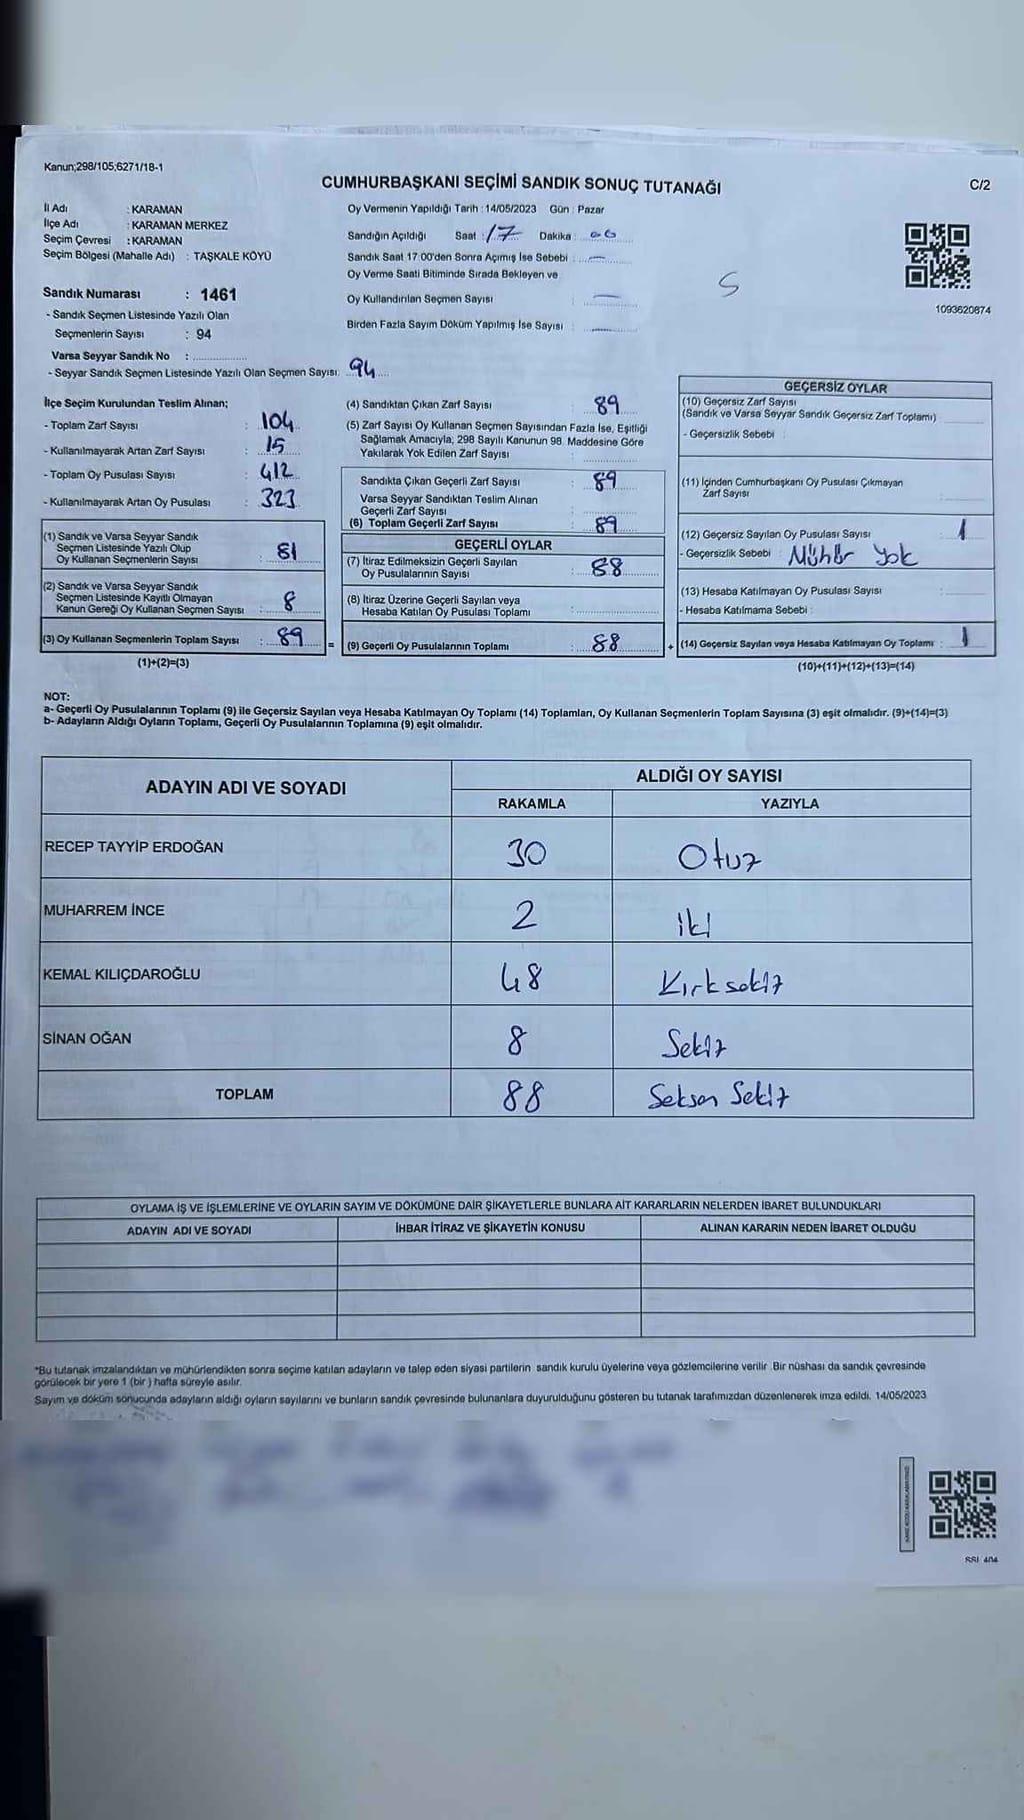 Kanun;298/105;6271/18-1
CUMHURBAŞKANI SEÇİMİ SANDIK SONUÇ TUTANAĞI
C/2
İl Adı : KARAMAN
İlçe Adı : KARAMAN MERKEZ
Seçim Çevresi : KARAMAN
Seçim Bölgesi (Mahalle Adı) : TAŞKALE KÖYÜ
Sandık Numarası : 1461
- Sandık Seçmen Listesinde Yazılı Olan
Seçmenlerin Sayısı : 94
Varsa Seyyar Sandık No :
- Seyyar Sandık Seçmen Listesinde Yazılı Olan Seçmen Sayısı: 94
Oy Vermenin Yapıldığı Tarih : 14/05/2023 Gün : Pazar
Sandığın Açıldığı Saat : 17 Dakika :
Sandık Saat 17.00'den Sonra Açımış İse Sebebi : —
Oy Verme Saati Bitiminde Sırada Bekleyen ve
Oy Kullandırılan Seçmen Sayısı : —
Birden Fazla Sayım Döküm Yapılmış İse Sayısı : —
1093620874
İlçe Seçim Kurulundan Teslim Alınan;
- Toplam Zarf Sayısı : 104
- Kullanılmayarak Artan Zarf Sayısı : 15
- Toplam Oy Pusulası Sayısı : 412
- Kullanılmayarak Artan Oy Pusulası : 323
(1) Sandık ve Varsa Seyyar Sandık
Seçmen Listesinde Yazılı Olup
Oy Kullanan Seçmenlerin Sayısı : 81
(2) Sandık ve Varsa Seyyar Sandık
Seçmen Listesinde Kayıtlı Olmayan
Kanun Gereği Oy Kullanan Seçmen Sayısı : 8
(3) Oy Kullanan Seçmenlerin Toplam Sayısı : 89
(1)+(2)=(3)
(4) Sandıktan Çıkan Zarf Sayısı : 89
(5) Zarf Sayısı Oy Kullanan Seçmen Sayısından Fazla İse, Eşitliği
Sağlamak Amacıyla, 298 Sayılı Kanunun 98. Maddesine Göre
Yakılarak Yok Edilen Zarf Sayısı :
Sandıkta Çıkan Geçerli Zarf Sayısı : 89
Varsa Seyyar Sandıktan Teslim Alınan
Geçerli Zarf Sayısı :
(6) Toplam Geçerli Zarf Sayısı : 89
GEÇERLİ OYLAR
(7) İtiraz Edilmeksizin Geçerli Sayılan
Oy Pusulalarının Sayısı : 88
(8) İtiraz Üzerine Geçerli Sayılan veya
Hesaba Katılan Oy Pusulası Toplamı :
= (9) Geçerli Oy Pusulalarının Toplamı : 88
GEÇERSİZ OYLAR
(10) Geçersiz Zarf Sayısı
(Sandık ve Varsa Seyyar Sandık Geçersiz Zarf Toplamı) :
- Geçersizlik Sebebi :
(11) İçinden Cumhurbaşkanı Oy Pusulası Çıkmayan
Zarf Sayısı :
(12) Geçersiz Sayılan Oy Pusulası Sayısı : 1
- Geçersizlik Sebebi : Mühür Yok
(13) Hesaba Katılmayan Oy Pusulası Sayısı :
- Hesaba Katılmama Sebebi :
+ (14) Geçersiz Sayılan veya Hesaba Katılmayan Oy Toplamı : 1
(10)+(11)+(12)+(13)=(14)
NOT:
a- Geçerli Oy Pusulalarının Toplamı (9) ile Geçersiz Sayılan veya Hesaba Katılmayan Oy Toplamı (14) Toplamları, Oy Kullanan Seçmenlerin Toplam Sayısına (3) eşit olmalıdır. (9)+(14)=(3)
b- Adayların Aldığı Oyların Toplamı, Geçerli Oy Pusulalarının Toplamına (9) eşit olmalıdır.
ADAYIN ADI VE SOYADI
ALDIĞI OY SAYISI
RAKAMLA YAZIYLA
RECEP TAYYİP ERDOĞAN 30 Otuz
MUHARREM İNCE 2 iki
KEMAL KILIÇDAROĞLU 48 Kırk sekiz
SİNAN OĞAN 8 Sekiz
TOPLAM 88 Seksen Sekiz
OYLAMA İŞ VE İŞLEMLERİNE VE OYLARIN SAYIM VE DÖKÜMÜNE DAİR ŞİKAYETLERLE BUNLARA AİT KARARLARIN NELERDEN İBARET BULUNDUKLARI
ADAYIN ADI VE SOYADI İHBAR İTİRAZ VE ŞİKAYETİN KONUSU ALINAN KARARIN NEDEN İBARET OLDUĞU
*Bu tutanak imzalandıktan ve mühürlendikten sonra seçime katılan adayların ve talep eden siyasi partilerin sandık kurulu üyelerine veya gözlemcilerine verilir. Bir nüshası da sandık çevresinde
görülecek bir yere 1 (bir ) hafta süreyle asılır.
Sayım ve döküm sonucunda adayların aldığı oyların sayılarını ve bunların sandık çevresinde bulunanlara duyurulduğunu gösteren bu tutanak tarafımızdan düzenlenerek imza edildi. 14/05/2023